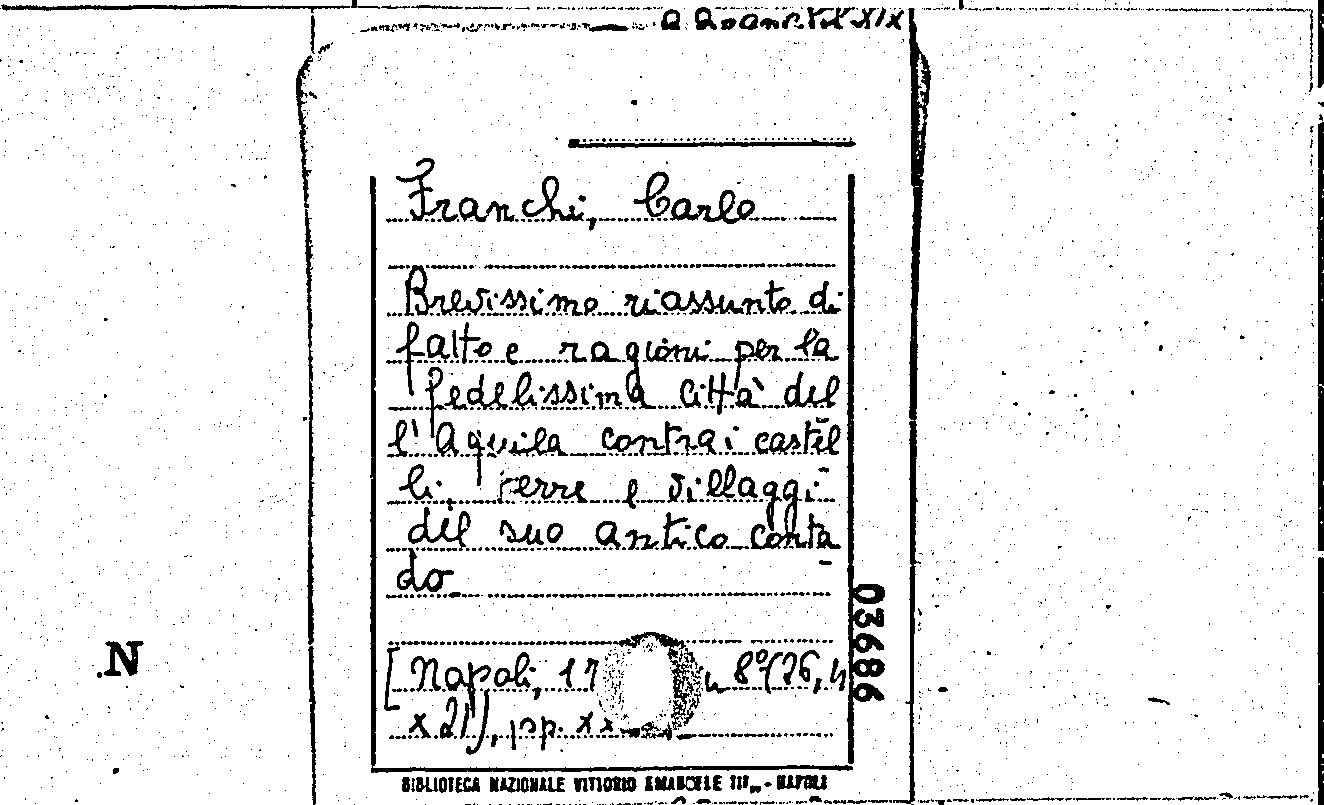 Franchi, Carlo
Brevissimo riassunto di
fatto e ragioni per la
fedelissima città del
l'Aquila contra i castel
li, terre e villaggi
del suo antico conta
do
[Napoli, 17 8° (26,4
x 21), pp. xx
03686
N
BIBLIOTECA NAZIONALE VITTORIO EMANUELE III - NAPOLI